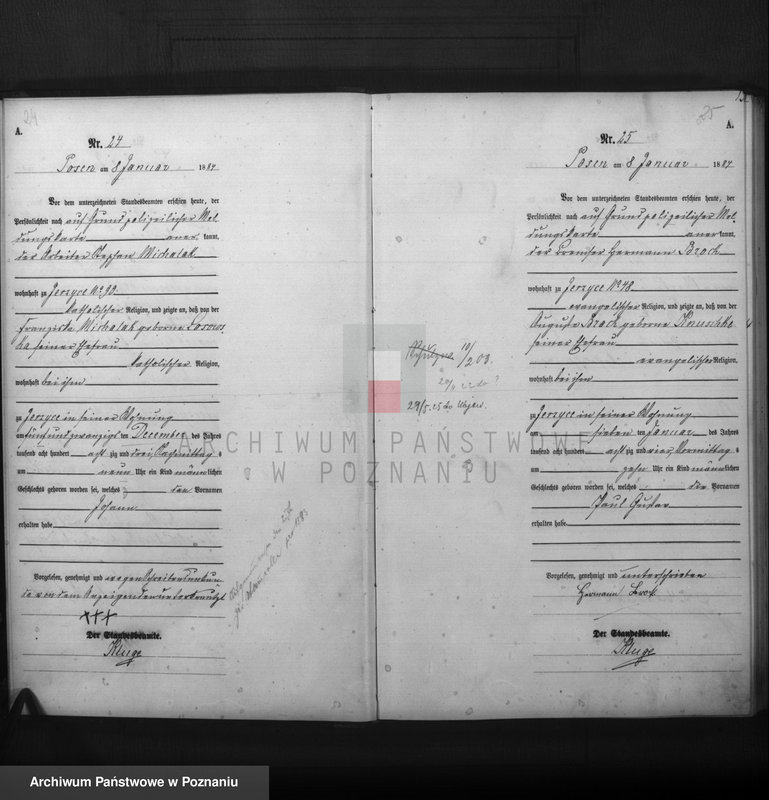 24
A.
Nr. 24
Posen am 8 Januar 1884
Vor dem unterzeichneten Standesbeamten erschien heute, der
Persönlichkeit nach auf Grund polizeilicher Mel
dungskarte aner kannt,
der Arbeiter Stephan Michalak
wohnhaft zu Jerzyce No. 90
katholischer Religion, und zeigte an, daß von der
Franziska Michalak geborne
ka seiner Ehefrau
katholischer Religion,
wohnhaft bei ihm
zu Jerzyce in seiner Wohnung
am fünf und zwanzigs ten December des Jahres
tausend acht hundert acht zig und drei Nachmittags
um neun Uhr ein Kind männlichen
Geschlechts geboren worden sei, welches den Vornamen
Johann
erhalten habe
Vorgelesen, genehmigt und wegen Schreibensunkun
de von dem Anzeigenden unterkreuzt
+++
Der Standesbeamte.
Kluge
25
A.
Nr. 25
Posen am 8 Januar 1884
Vor dem unterzeichneten Standesbeamten erschien heute, der
Persönlichkeit nach auf Grund polizeilicher Mel-
dungskarte aner kannt,
der Bremser Hermann Brock
wohnhaft zu Jerzyce No 48
evangelischer Religion, und zeigte an, daß von der
Auguste Brock geborne
seiner Ehefrau
evangelischer Religion,
wohnhaft bei ihm
zu Jerzyce in seiner Wohnung
am sieben ten Januar des Jahres
tausend acht hundert acht zig und vier Vormittag s
um zehn Uhr ein Kind männlichen
Geschlechts geboren worden sei, welches die Vornamen
Paul Gustav
erhalten habe
Vorgelesen, genehmigt und unterschrieben
Hermann Brock
Der Standesbeamte.
Kluge
ARCHIWUM PAŃSTWOWE
W POZNANIU
Archiwum Państwowe w Poznaniu